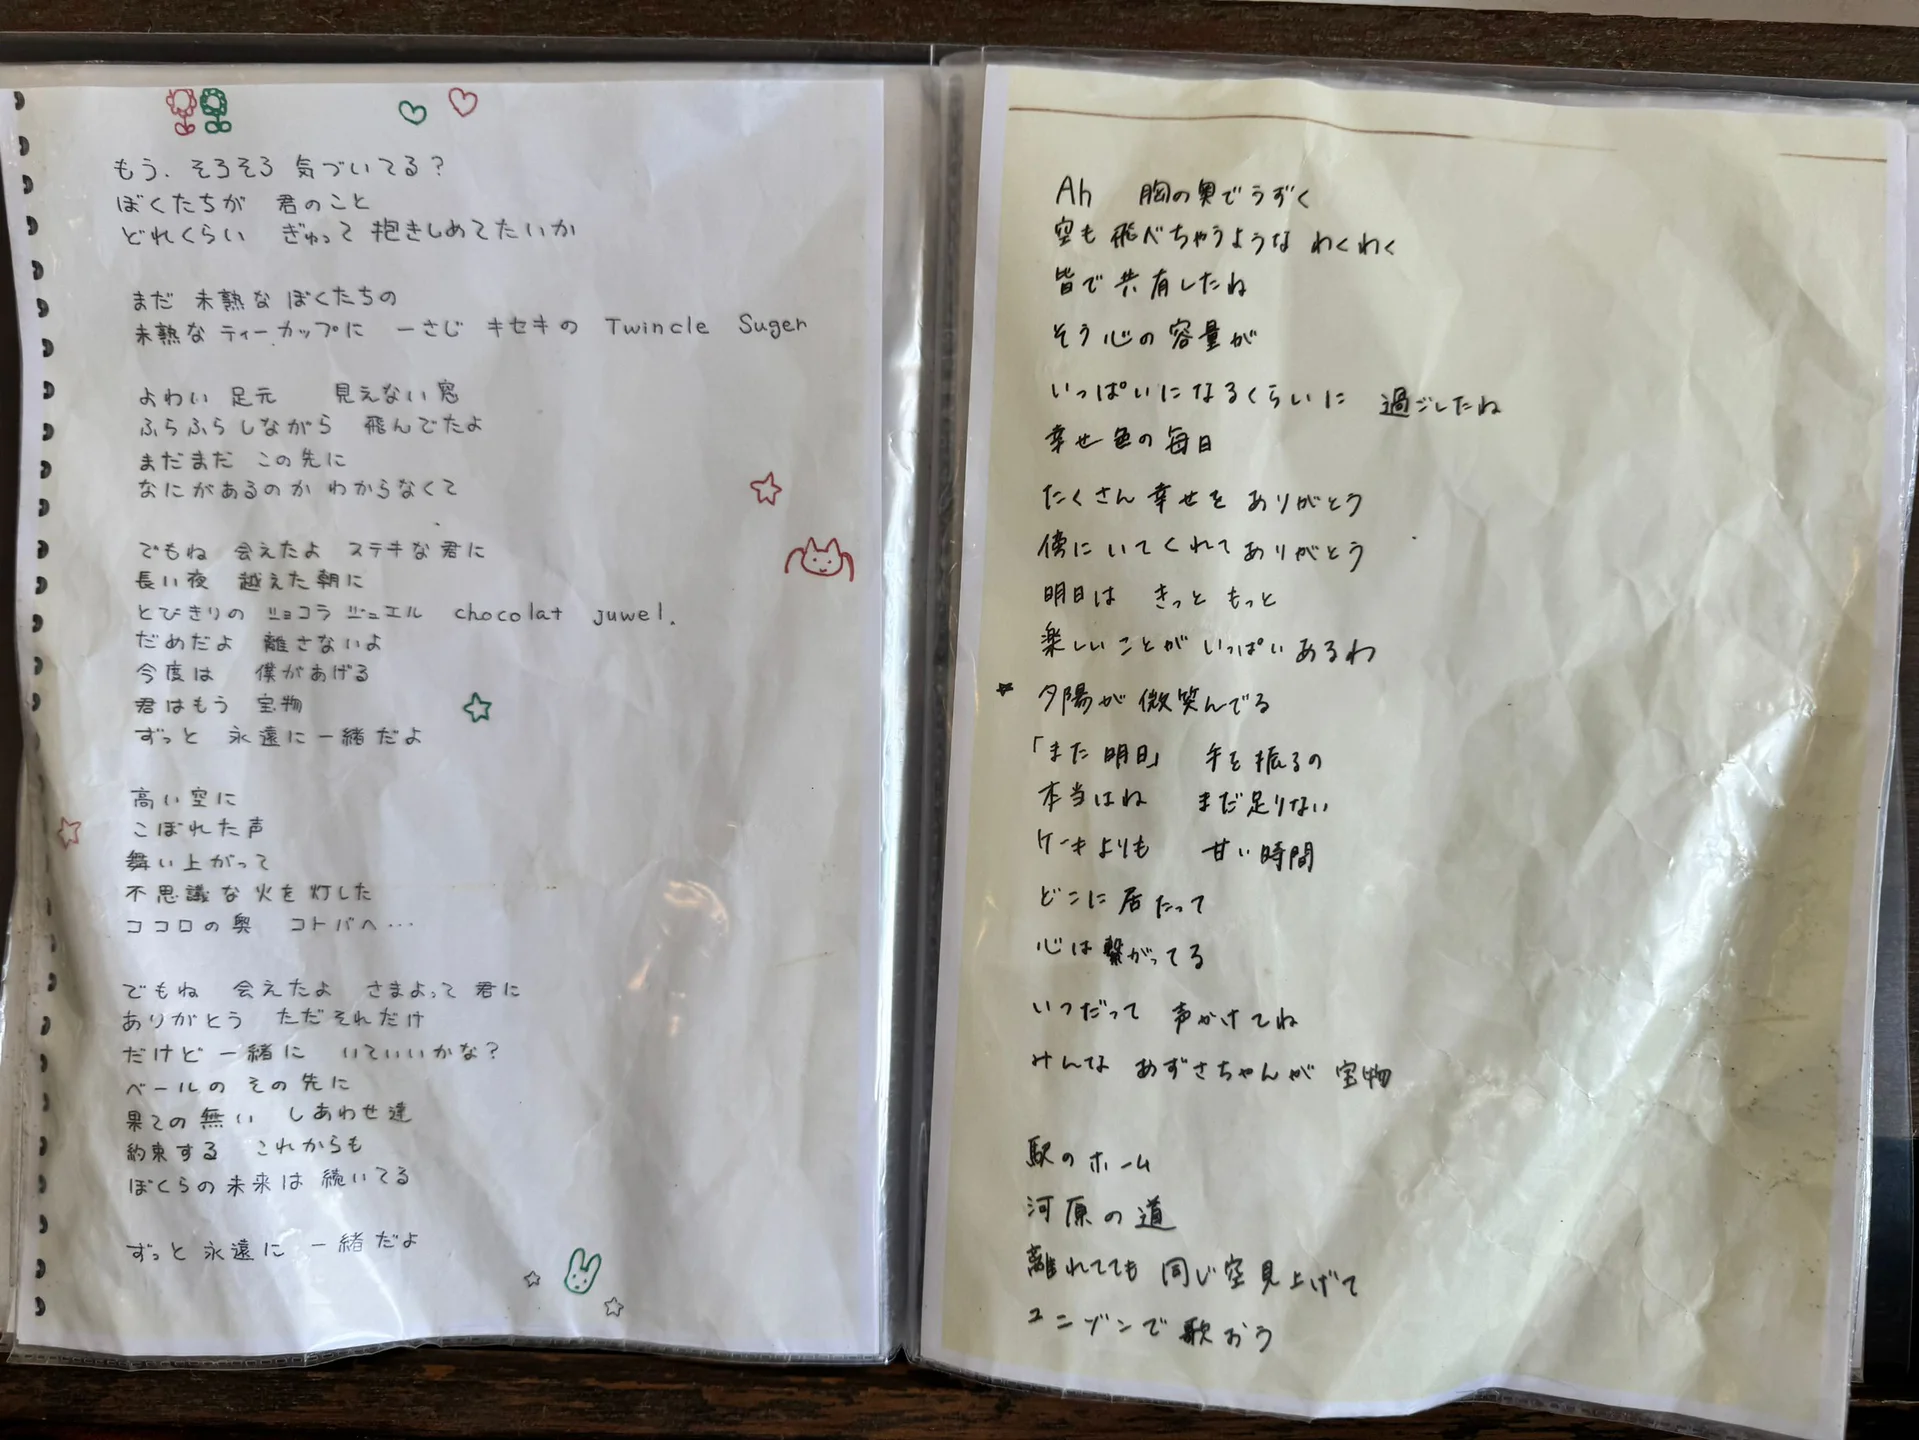 もう、そろそろ 気づいてる?
ぼくたちが 君のこと
どれくらい ぎゅって 抱きしめてたいか
まだ 未熟な ぼくたちの
未熟な ティーカップに 一さじ キセキの Twincle Suger
よわい 足元 見えない 窓
ふらふら しながら 飛んでたよ
まだまだ この先に
なにがあるのか わからなくて
でもね 会えたよ ステキな君に
長い夜 越えた朝に
とびきりの ショコラ ジュエル chocolat juwel.
だめだよ 離さないよ
今度は 僕があげる
君はもう 宝物
ずっと 永遠に一緒だよ
高い空に
こぼれた声
舞い上がって
不思議な火を灯した
ココロの奥 コトバへ…
でもね 会えたよ さまよって 君に
ありがとう ただそれだけ
だけど 一緒に いていいかな?
ベールの その先に
果ての無い しあわせ達
約束する これからも
ぼくらの未来は 続いてる
ずっと 永遠に 一緒だよ
Ah 胸の奥でうずく
空も飛べちゃうような わくわく
皆で共有したね
そう心の容量が
いっぱいになるくらいに 過ごしたね
幸せ色の毎日
たくさん幸せを ありがとう
傍にいてくれて ありがとう
明日は きっと もっと
楽しいことが いっぱいあるわ
夕陽が微笑んでる
「また明日」 手を振るの
本当はね まだ足りない
ケーキよりも 甘い時間
どこに居たって
心は繋がってる
いつだって 声かけてね
みんな あずさちゃんが 宝物
駅のホーム
河原の道
離れてても 同じ空見上げて
ユニゾンで歌おう